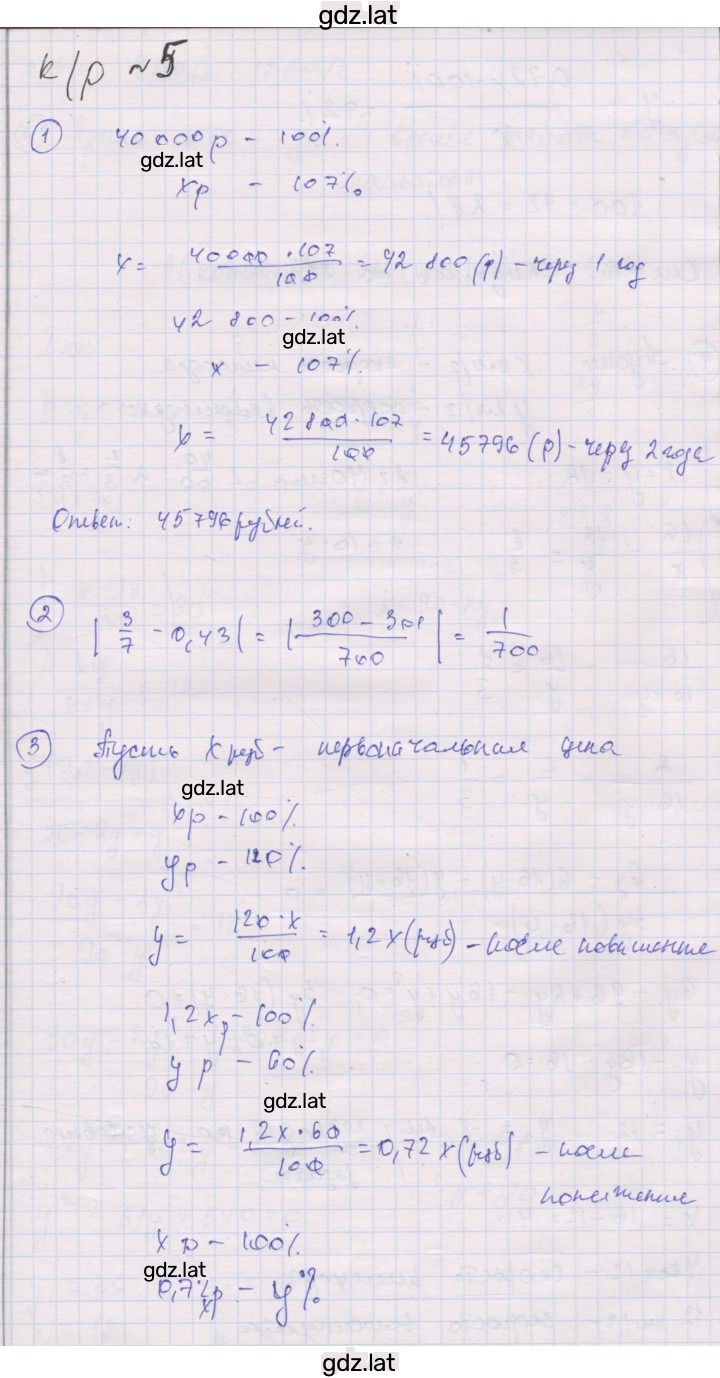 gdz.lat
к/р №5
① 40 000 р – 100%.
gdz.lat
xр – 107%
x = 40000 · 107 / 100 = 42 800 (р) – через 1 год
42 800 – 100%.
gdz.lat
x – 107%.
x = 42 800 · 107 / 100 = 45796 (р) – через 2 года
Ответ: 45796 рублей.
② | 3/7 – 0,43 | = | 300 – 301 / 700 | = 1/700
③ Пусть x руб – первоначальная цена
gdz.lat
xр – 100%.
yр – 120%.
y = 120 · x / 100 = 1,2x (руб) – после повышения
1,2xр – 100%.
y р – 60%.
gdz.lat
y = 1,2x · 60 / 100 = 0,72 x (руб) – после
понижения
x р – 100%.
gdz.lat
0,72xр – y%
gdz.lat